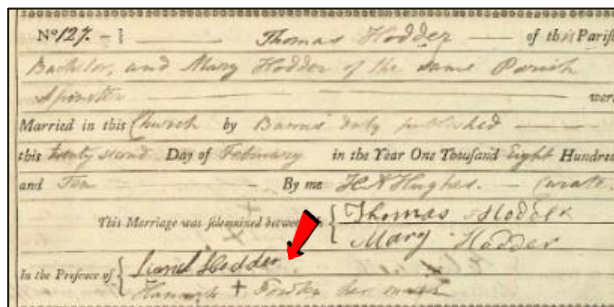 No 127. – } Thomas Hodder of this Parish
Bachelor, and Mary Hodder of the same Parish
Spinster were
Married in this Church by Banns duly published
this twenty second Day of February in the Year One Thousand Eight Hundred
and Ten By me H Hughes. – Curate
This Marriage was solemnized between { Thomas Hodder
Mary Hodder
In the Presence of { Lionel Hodder
Hannah + Fowke her mark